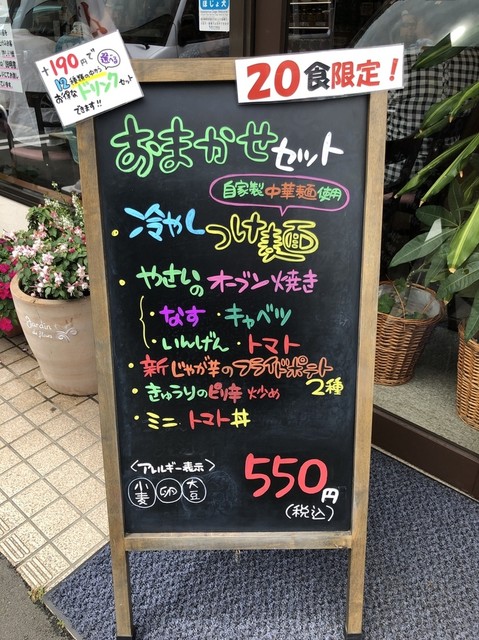 ほじょ犬
+190円で選べる
12種類の中から
お得なドリンクセット
できます!!
20食限定!
おまかせセット
自家製中華麺使用
・冷やしつけ麺
・やさいのオーブン焼き
・なす ・キャベツ
・いんげん ・トマト
・新じゃが芋のフライドポテト
2種
・きゅうりのピリ辛炒め
・ミニトマト丼
<アレルギー表示>
小麦 卵 大豆
550円
(税込)
Jardin